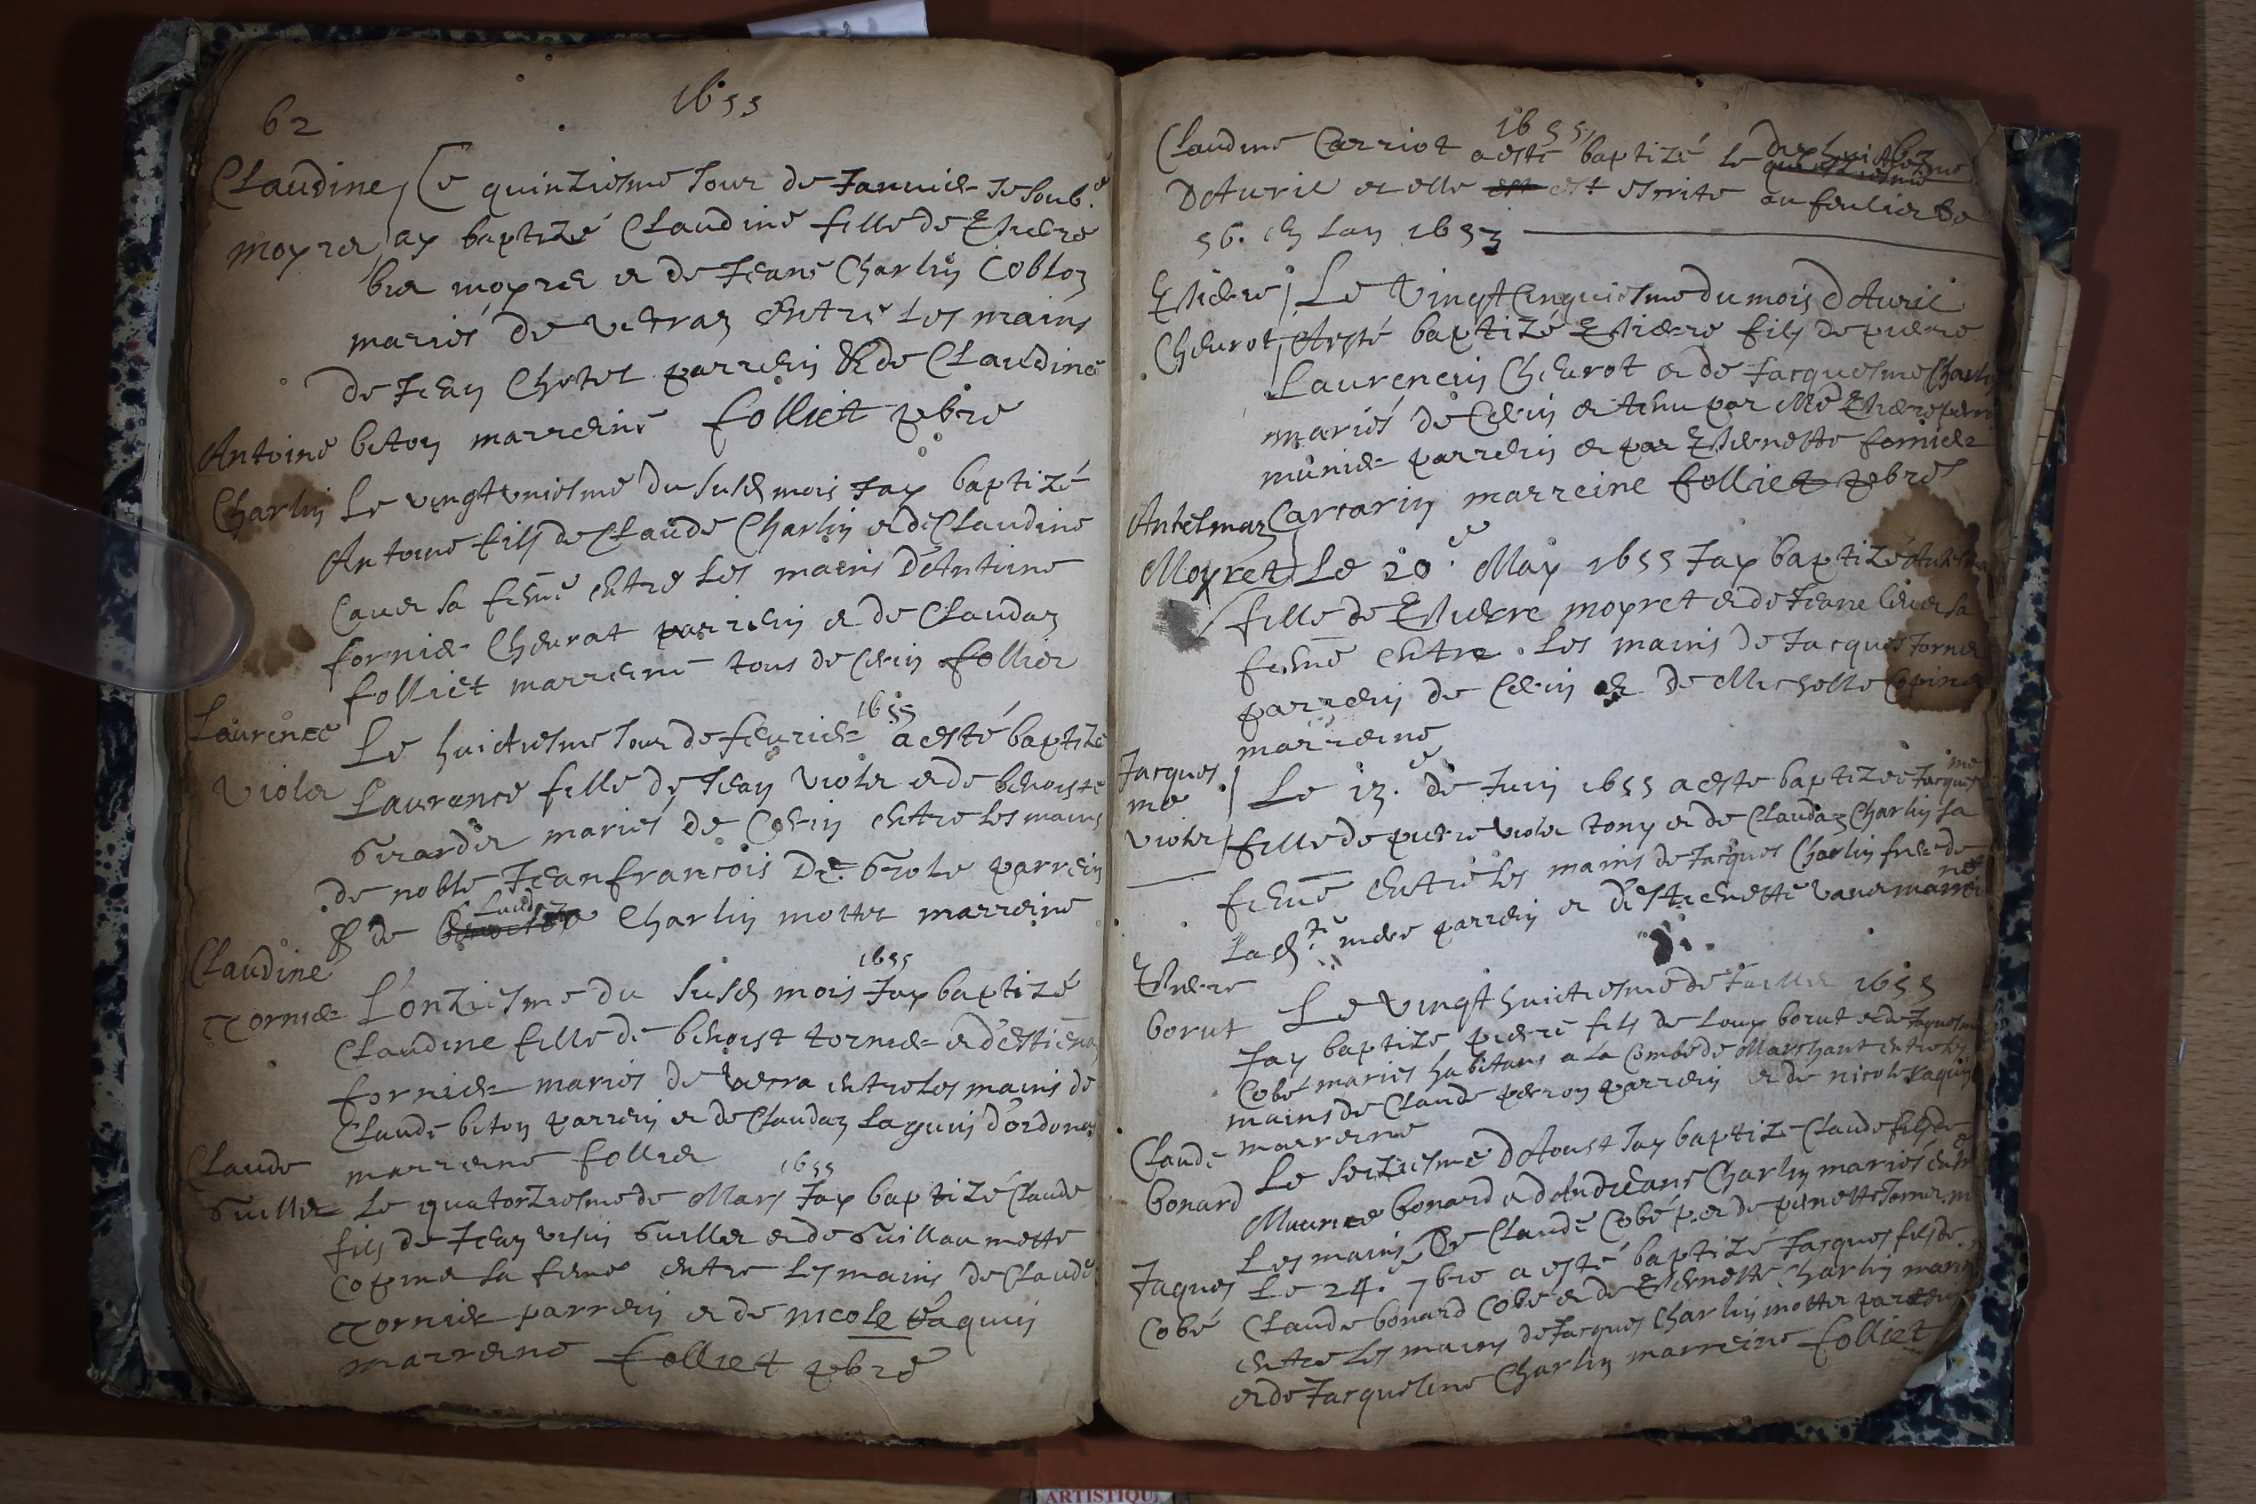 62
1655
Claudine
moyret
Ce quinziesme Jour de Januier Je soub.é
ay baptizé Claudine fille de Estiene
moyret et de Jeane Charlin Cobloz
mariés de veiraz entre les mains
de Jean Chotet parrein & de Claudine
beton marreine folliet pbre
Antoine
Charlin
Le vingt vniesme du susd mois Jay baptizé
Antoine fils de Claude Charlin et de Claudine
Cauet sa feme entre les mains D'Antoine
fornier Cheurat parrein et de Claudaz
folliet marreine tous de Cevin folliet
Laurence
Violet
Le huictiesme Jour de feurier 1655 a esté baptize
Laurence fille de Jean violet et de benoiste
Girardet mariés de Cevin entre les mains
de noble Jean francois De Giole parrein
& de Claudaz Charlin mottet marreine
Claudine
Tornier
L'onziesme du susd mois 1655 Jay baptizé
Claudine fille de benoist tornier et d'estiena
fornier mariés de verra entre les mains de
Claude beton parrein et de Claudaz laquin d'ordonaz
marreine folliet
Claude
Guillet
Le quatorziesme de Mars 1655 Jay baptizé Claude
fils de Jean Guillet et de Guillaumette
Copinet sa feme entre les mains de Claude
Tornier parrein et de nicole vaquin
marreine folliet pbre
Claudine Carriot 1655 a esté baptizé le dix huictiesme
D'Auril et elle est est escrite au feuliet de
56. en lan 1653
Estiene
Cheurot
Le Vingt Cinquiesme du mois d'Auril
A esté baptizé Estiene fils de pierre
Laurencin Cheurot et de Jacquesme Charlin
mariés de Cevin et tenu par Me Estiene
munier parrein et par Estienette fornier
Carcarin marreine folliet pbre
Antelmaz
Moyret
Le 20.e May 1655 Jay baptizé Antelma
fille de Estiene moyret et de Jeane sa
feme entre les mains de Jacques Tornier
parrein de Cevin et de Michelle Copinet
marreine
Jacques
me
Violet
Le 13.e de Juin 1655 a este baptizee Jacquesme
fille de pierre violet tony et de Claudaz Charlin sa
feme entre les mains de Jacques Charlin frere de
lad.te mere parrein et d'estienette vauet marreine
Pierre
borut
Le vingt huictiesme de Juillet 1655
Jay baptize pierre fils de Loup borut et de Jaquesme
Cobé mariés habitans a la Combe de Marchant entre les
mains de Claude perron parrein et de nicole vaquin
marreine
Claude
bonard
Le seiziesme d'Aoust Jay baptize Claude fils de
Maurice bonard et d'Andreane Charlin mariés entre
les mains De Claude Cobé p. et de pernette Tornier m
Jaques
Cobé
Le 24.e 7bre a esté baptizé Jacques fils de
Claude bonard Cobé et de Estienette Charlin mariés
entre les mains de Jacques Charlin mottet parrein
et de Jacqueline Charlin marreine folliet
ARTISTIQU